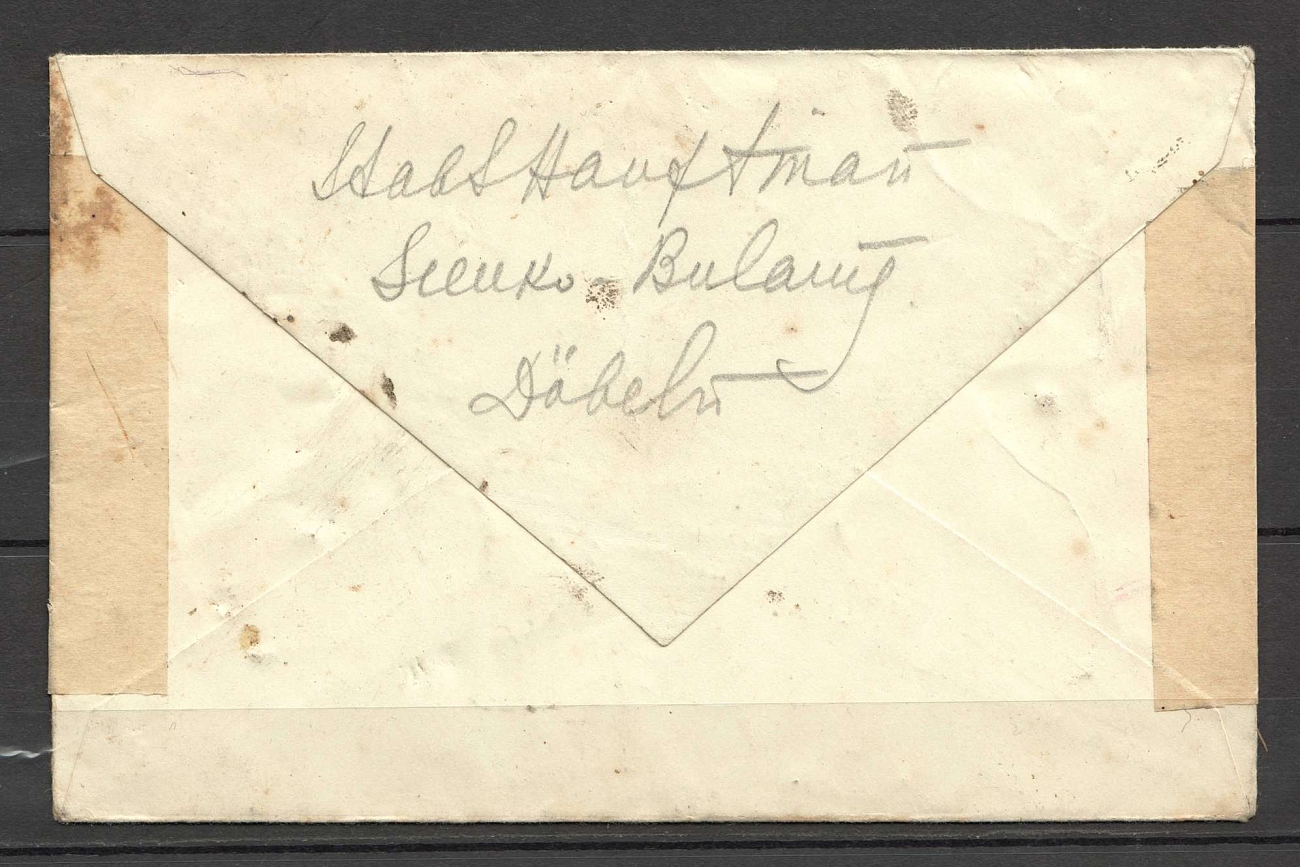 Stabs Hauptman̅
Seenko - Bulawig
Döbeln̅